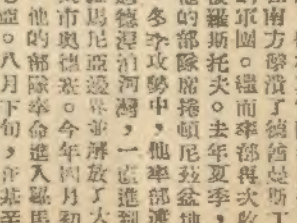 南方擊潰了德酋曼斯
軍團。繼而率部再次
羅斯托夫。去年夏季，
的部隊席捲頓尼茲盆地
冬季攻勢中，他率部渡
過德涅泊河灣，一直進到
馬尼亞邊界並解放了大
市奧德薩。今年四月初
他的部隊奉命進入羅馬
。八月下旬，在基辛